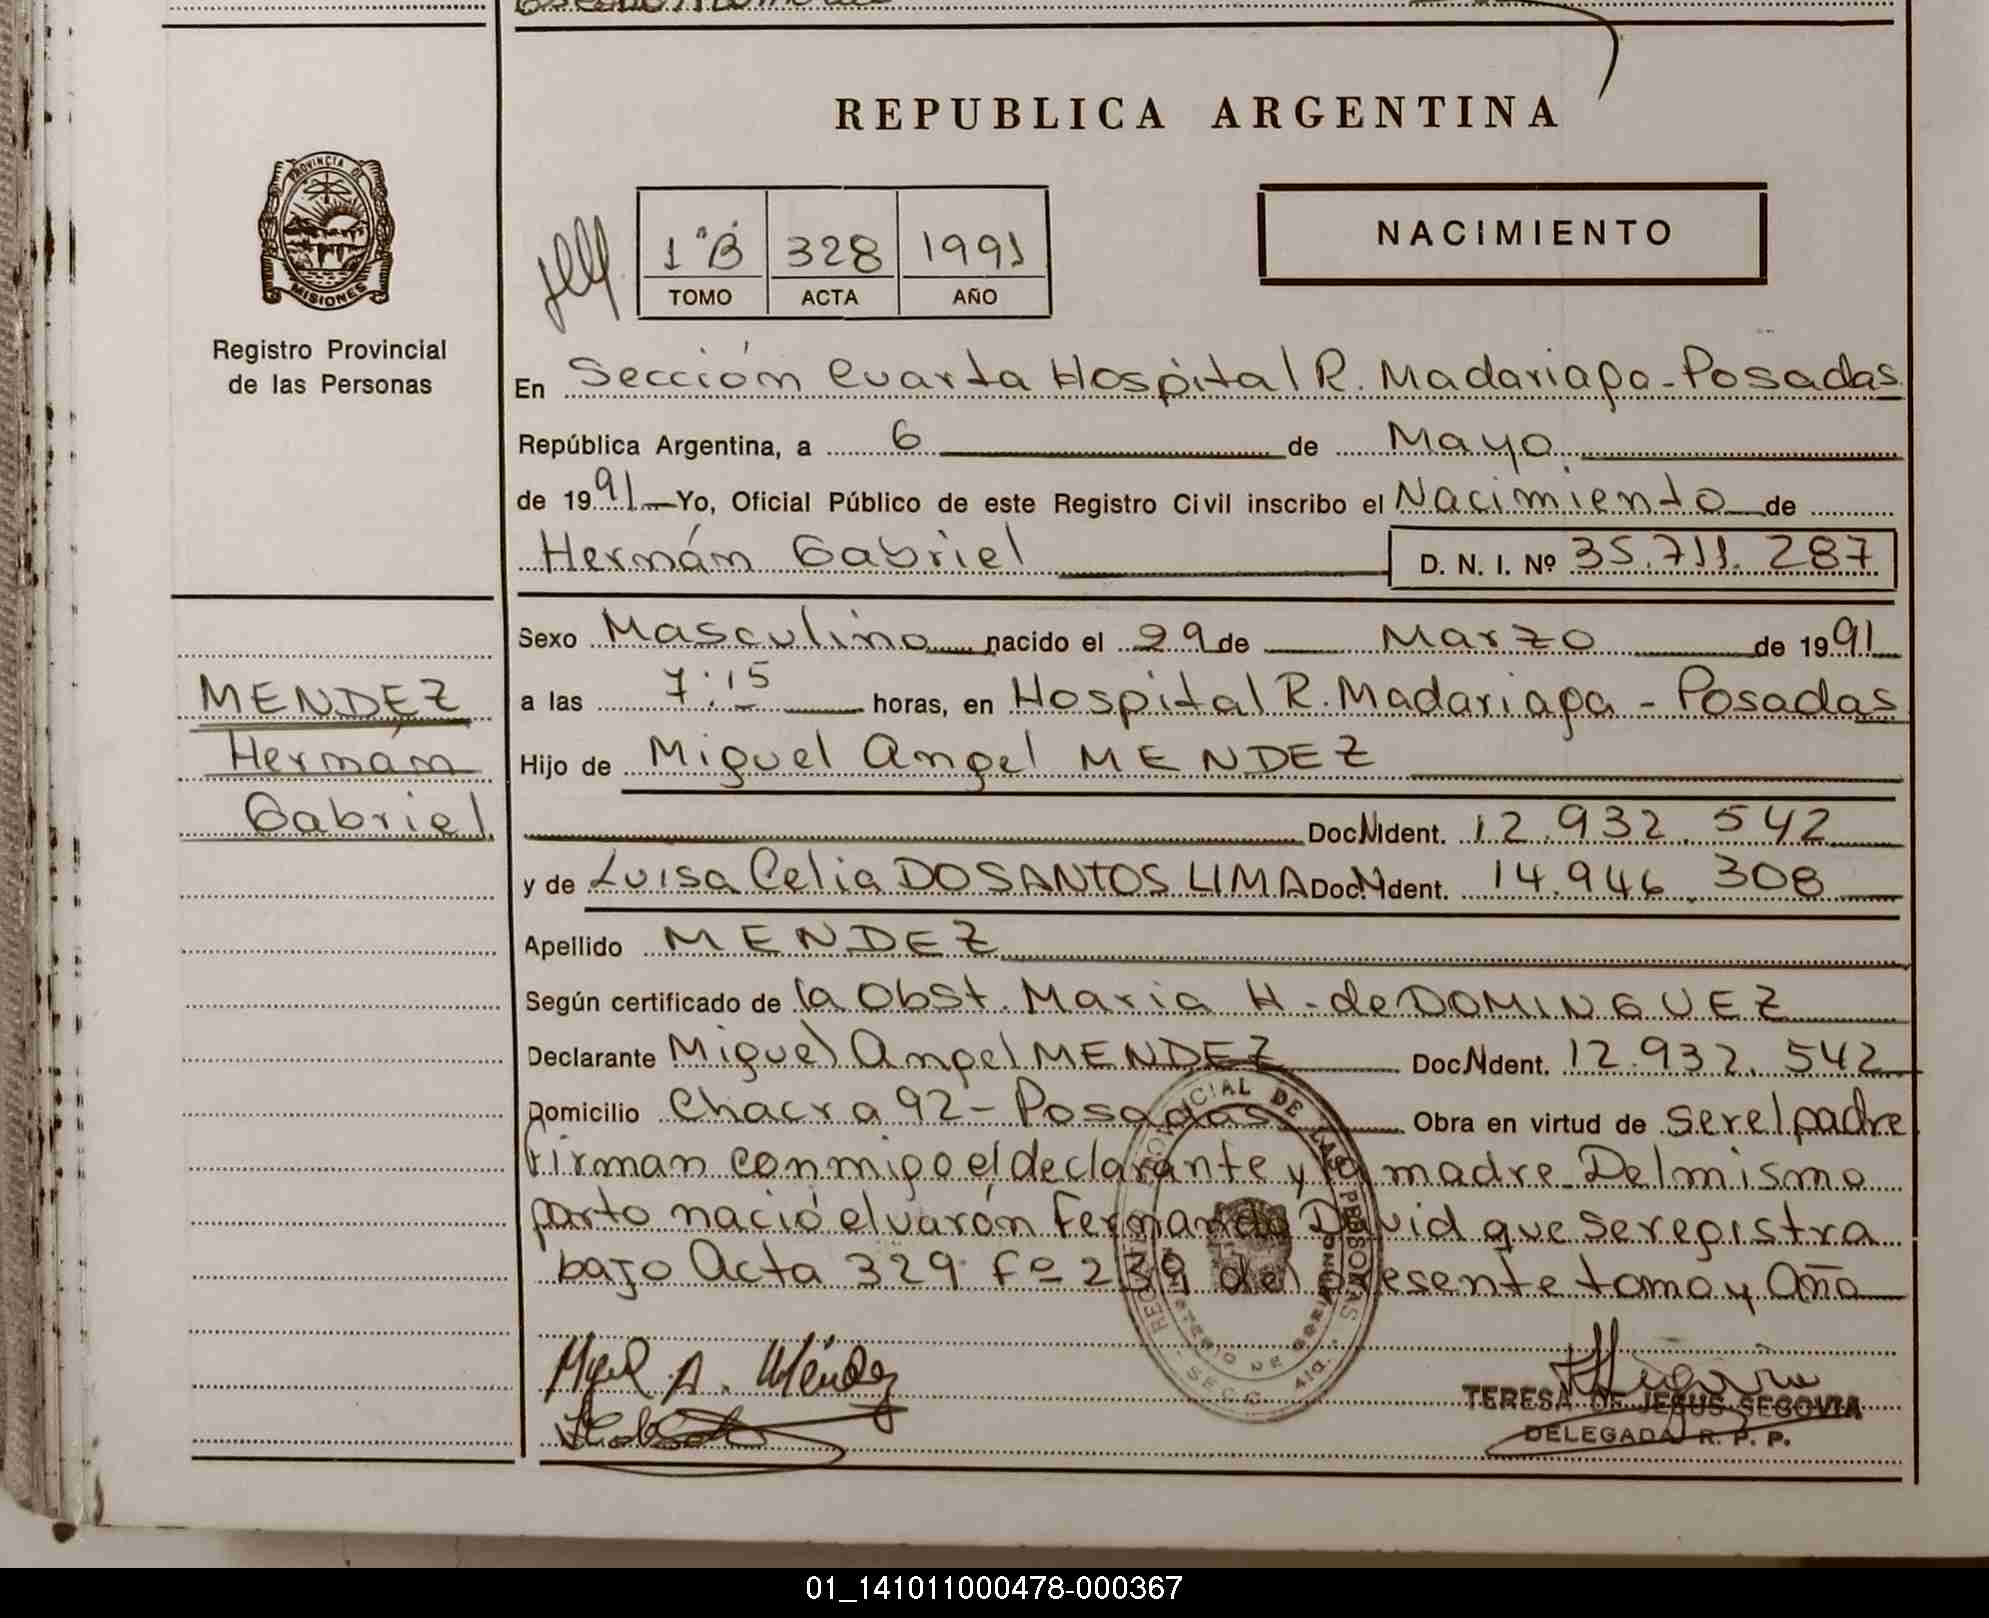 REPUBLICA ARGENTINA
PROVINCIA DE
MISIONES
Registro Provincial
de las Personas
1ºB 328 1991
TOMO ACTA AÑO
NACIMIENTO
En Sección Cuarta Hospital R. Madariaga - Posadas
República Argentina, a 6 de Mayo
de 1991 Yo, Oficial Público de este Registro Civil inscribo el Nacimiento de
Hernán Gabriel D. N. I. Nº 35.711.287
Sexo Masculino nacido el 29 de Marzo de 1991
MENDEZ
Hernán
Gabriel
a las 7:15 horas, en Hospital R. Madariaga - Posadas
Hijo de Miguel Angel MENDEZ
Doc.N.Ident. 12.932.542
y de Luisa Celia DOSANTOS LIMA Doc.N.Ident. 14.946.308
Apellido MENDEZ
Según certificado de la Obst. Maria H. de DOMINGUEZ
Declarante Miguel Angel MENDEZ Doc.N.Ident. 12.932.542
Domicilio Chacra 92 - Posadas Obra en virtud de ser el padre
Firman conmigo el declarante y la madre. Del mismo
parto nació el varón Fernando David que se registra
bajo Acta 329 Fº 239 del presente tomo y Año
Miguel A. Méndez
TERESA DE JESUS SEGOVIA
DELEGADA R. P. P.
01_141011000478-000367